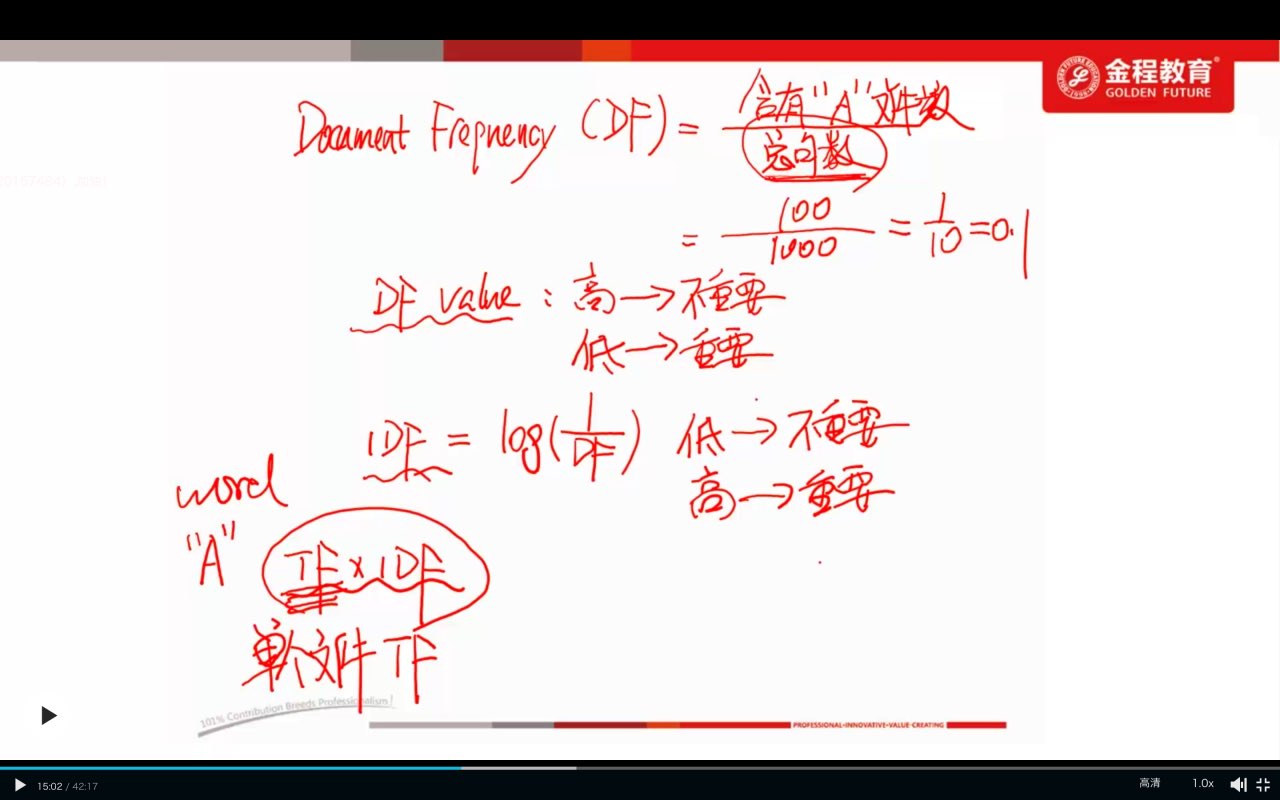 金程教育
GOLDEN FUTURE
Document Frequency (DF) = 含有"A"文件数
总句数
= 100
1000
= 1
10
= 0.1
DF value : 高 → 不重要
低 → 重要
IDF = log(1
DF) 低 → 不重要
高 → 重要
word
"A"
TF × IDF
单个文件 TF
101% Contribution Breeds Professionalism!
PROFESSIONAL·INNOVATIVE·VALUE-CREATING
15:02 / 42:17
高清
1.0x